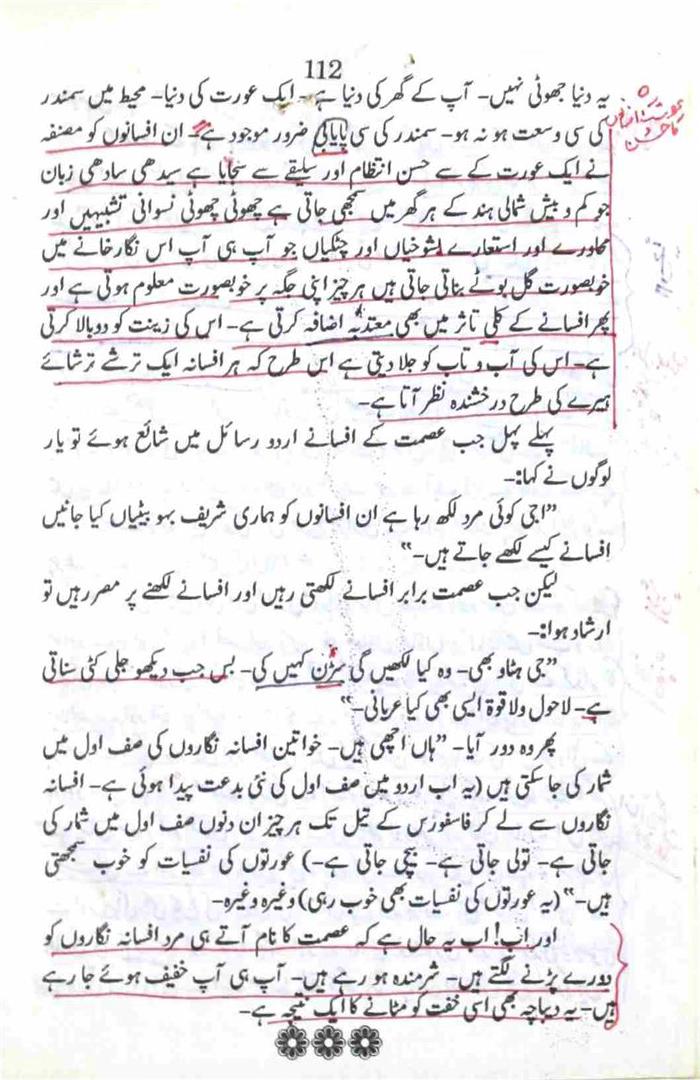 112
یہ دنیا جھوٹی نہیں۔ آپ کے گھر کی دنیا ہے۔ ایک عورت کی دنیا۔ محیط میں سمندر
کی سی وسعت ہو نہ ہو۔ سمندر کی سی پایابی ضرور موجود ہے۔ ان افسانوں کو مصنفہ
نے ایک عورت کے سے حسن انتظام اور سلیقے سے سجایا ہے سیدھی سادھی زبان
جو کم و بیش شمالی ہند کے ہر گھر میں سمجھی جاتی ہے چھوٹی چھوٹی نسوانی تشبیہیں اور
محاورے اور استعارے شوخیاں اور چٹکیاں جو آپ ہی آپ اس نگار خانے میں
خوبصورت گل بوٹے بناتی جاتی ہیں ہر چیز اپنی جگہ پر خوبصورت معلوم ہوتی ہے اور
پھر افسانے کے کلی تاثر میں بھی معتدبہ اضافہ کرتی ہے۔ اس کی زینت کو دوبالا کرتی
ہے۔ اس کی آب و تاب کو جلا دیتی ہے اس طرح کہ ہر افسانہ ایک ترشے ترشائے
ہیرے کی طرح درخشندہ نظر آتا ہے۔
پہلے پہل جب عصمت کے افسانے اردو رسائل میں شائع ہوئے تو یار
لوگوں نے کہا:۔
”اجی کوئی مرد لکھ رہا ہے ان افسانوں کو ہماری شریف بہو بیٹیاں کیا جانیں
افسانے کیسے لکھے جاتے ہیں۔“
لیکن جب عصمت برابر افسانے لکھتی رہیں اور افسانے لکھنے پر مصر رہیں تو
ارشاد ہوا:۔
”جی ہٹاو بھی۔ وہ کیا لکھیں گی سڑن کہیں کی۔ بس جب دیکھو جلی کٹی سناتی
ہے۔ لاحول ولا قوۃ ایسی بھی کیا عریانی۔“
پھر وہ دور آیا۔ ”ہاں اچھی ہیں۔ خواتین افسانہ نگاروں کی صف اول میں
شمار کی جا سکتی ہیں (یہ اب اردو میں صف اول کی نئی بدعت پیدا ہوئی ہے۔ افسانہ
نگاروں سے لے کر فاسفورس کے تیل تک ہر چیز ان دنوں صف اول میں شمار کی
جاتی ہے۔ تولی جاتی ہے۔ بیچی جاتی ہے۔) عورتوں کی نفسیات کو خوب سمجھتی
ہیں۔“ (یہ عورتوں کی نفسیات بھی خوب رہی) وغیرہ وغیرہ۔
اور اب! اب یہ حال ہے کہ عصمت کا نام آتے ہی مرد افسانہ نگاروں کو
دورے پڑنے لگتے ہیں۔ شرمندہ ہو رہے ہیں۔ آپ ہی آپ خفیف ہوئے جا رہے
ہیں۔ یہ دیباچہ بھی اسی خفت کو مٹانے کا ایک نتیجہ ہے۔